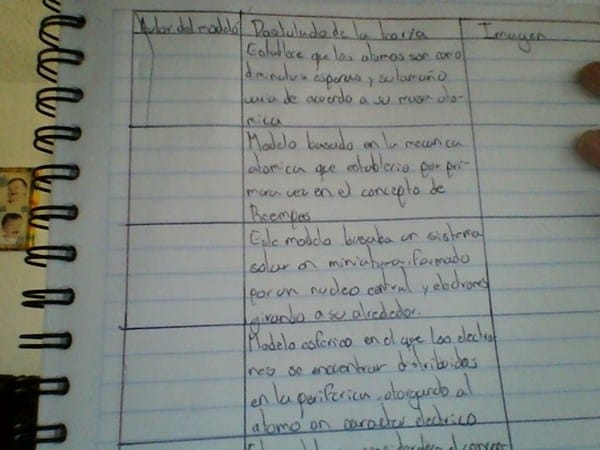 Autor del modelo Postulado de la teoria Imagen
Establece que los atomos son como
diminutas esperas, y su tamaño
varia de acuerdo a su masa ato-
mica
Modelo basado en la mecanica
atomica que establecio por pri-
mera vez en el concepto de
Reempes
Este modelo basaba un sistema
solar en miniatura, formado
por un nucleo central y electrones
girando a su alrededor.
Modelo esferico en el que los electro
nes se encuentran distribuidos
en la periferica, otorgando al
atomo un caracter electrico